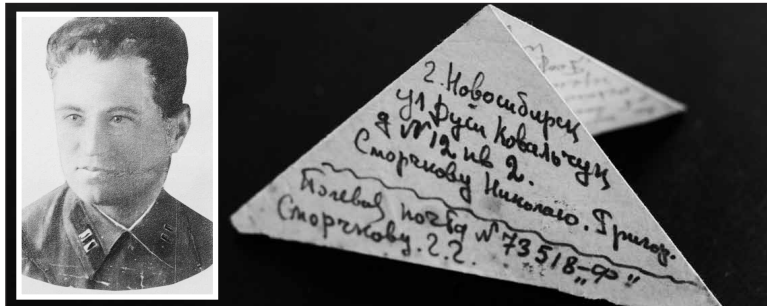 г. Новосибирск
ул Дуси Ковальчук
д №12 кв 2.
Сторчкову Николаю. Григор.
Полевая почта №73518-Ф"
Сторчкову. Г.Г.